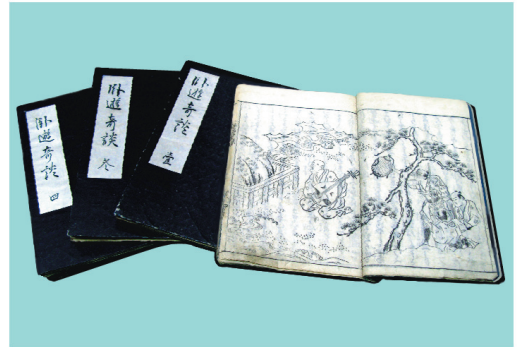 卧遊奇談 四
卧遊奇談 参
卧遊奇談 壹